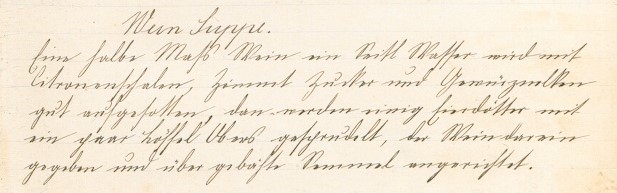 Wein Suppe.
Eine halbe Maß Wein ein Seitl Wasser wird mit
Citronenschalen, Zimmt Zucker und Gewürznelken
gut aufgesotten, dan werden einig Eierdötter mit
ein paar Löffel Obers gesprudelt, der Wein darein
gegeben und über gebähte Semmel angerichtet.